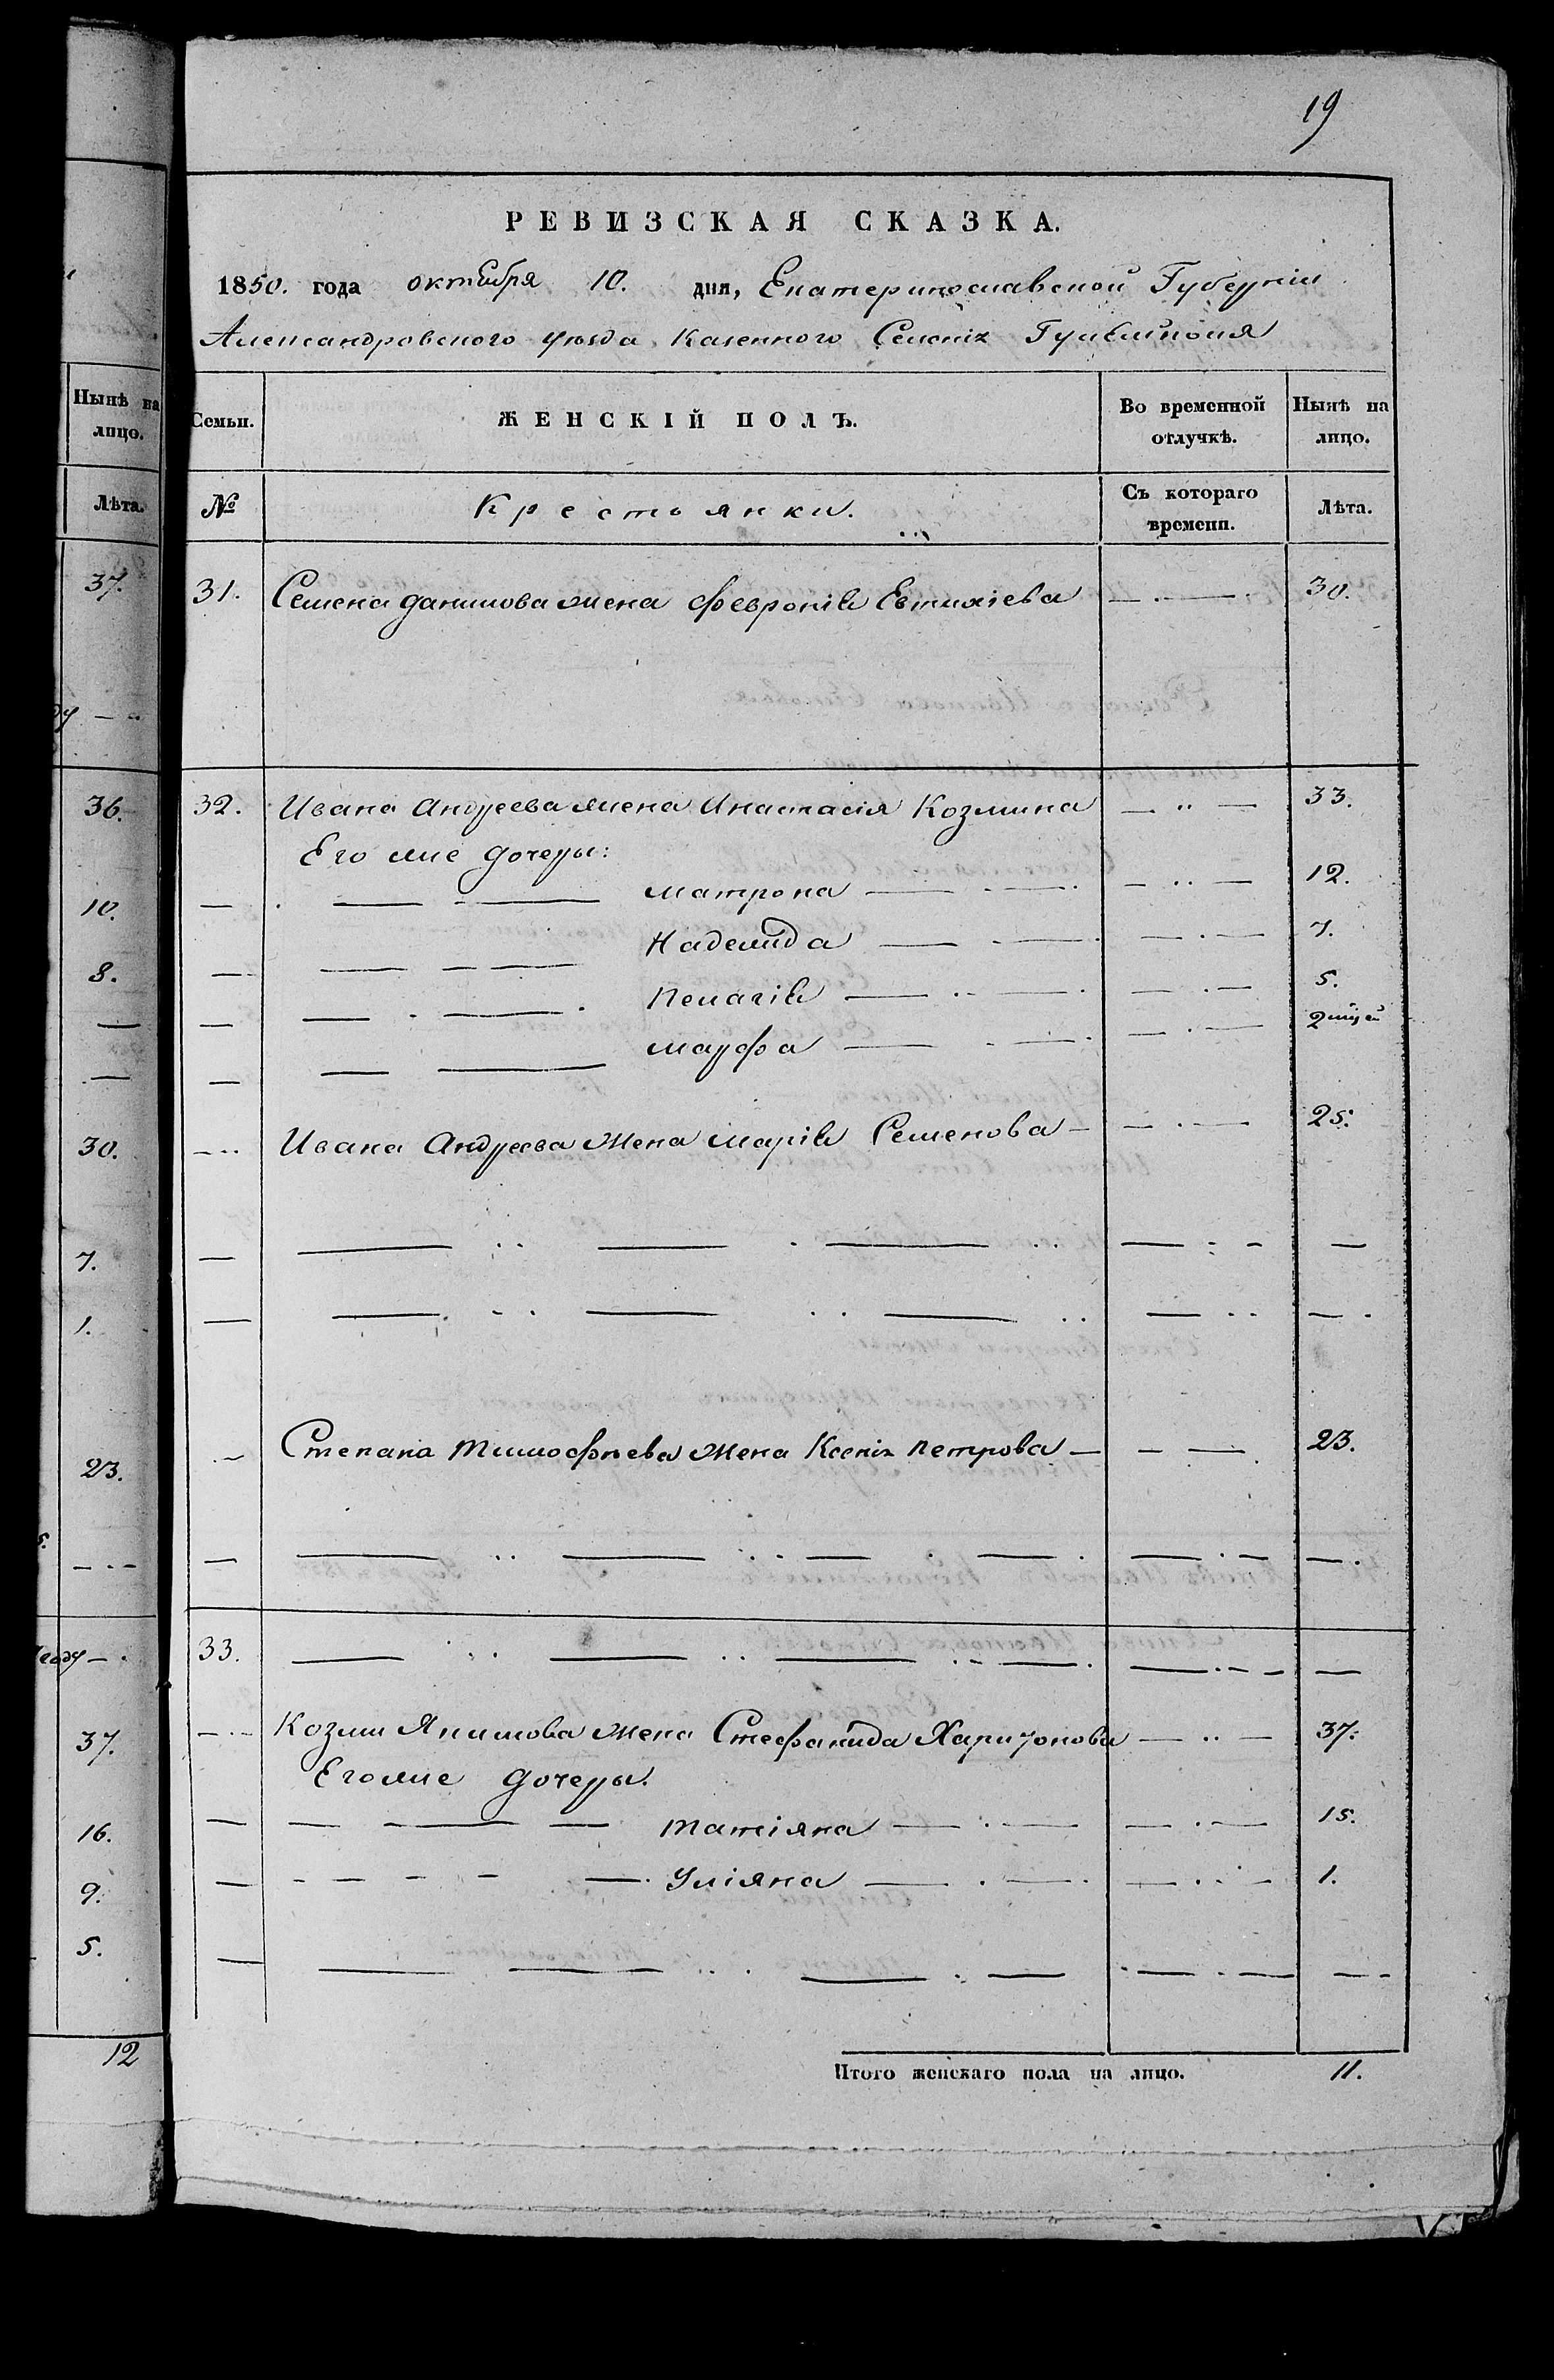 19
РЕВИЗСКАЯ СКАЗКА.
1850. года октября 10. дня, Екатеринославской Губернiи
Александровского уѣзда Казенного Селенiя
Семьи. ЖЕНСКIЙ ПОЛЪ. Во временной отлучкѣ. Нынѣ на лицо.
№ Крестьянки. Съ котораго времени. Лѣта.
31. Семена Данилова жена Февронiя Евтихiева — . — . 30.
32. Ивана Андреева жена Анастасiя Козмина — .. — 33.
Его же дочеры:
— . — — Матрона — . — . — .. — 12.
— — — — Надежида — . — . — . — 7.
— — . — . Пелагiя — .. — . — . — 5.
— — — Марфа — . — . — . — 2 мцей
— .. Ивана Андреева жена Марiя Семенова — — . — 25.
— — .. — . — .. — : - —
— — . .. — .. — .. — .. — .
— Степана Тимофѣева жена Ксенiя Петрова — - — . 23.
— — .. — .. — . — . — . — — .
33. — .. — .. — .. — . — . - - —
— . — Козми Якимова жена Стефанида Харитонова — .. — 37.
Его же дочеры.
— — — — Татiяна — . — — . — 15.
— - - - - — . Улiяна — . — . — . . - 1.
— — — .. . — . — . — . — — -
Итого женскаго пола на лицо. 11.
Нынѣ на лицо.
Лѣта.
37.
36.
10.
8.
—
—
30.
7.
1.
23.
— . —
37.
16.
9.
5.
12